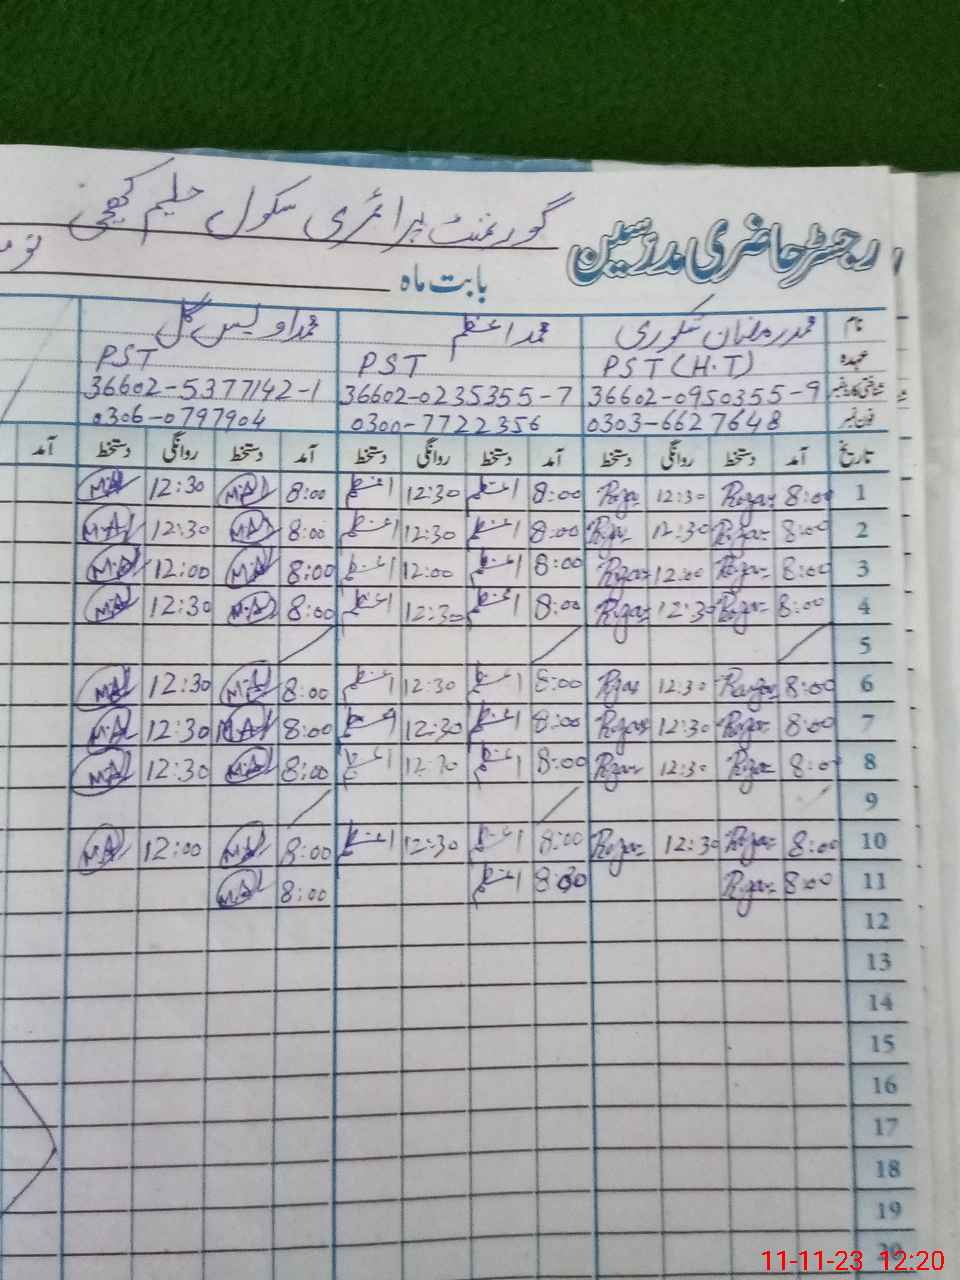 رجسٹر حاضری مدرسین گورنمنٹ پرائمری سکول حلیم کھچی
بابت ماہ نو
نام محمد رمضان شکوری محمد اعظم محمد اویس گل
عہدہ PST (H.T) PST PST
شناختی کارڈ نمبر 36602-0950355-9 36602-0235355-7 36602-5377142-1
فون نمبر 0303-6627648 0300-7722356 0306-0797904
تاریخ آمد دستخط روانگی دستخط آمد دستخط روانگی دستخط آمد دستخط روانگی دستخط آمد
1 8:00 12:30 8:00 اعظم 12:30 اعظم 8:00 M.A 12:30 M.A
2 8:00 12:30 8:00 اعظم 12:30 اعظم 8:00 M.A 12:30 M.A
3 8:00 12:00 8:00 اعظم 12:00 اعظم 8:00 M.A 12:00 M.A
4 8:00 12:30 8:00 اعظم 12:30 اعظم 8:00 M.A 12:30 M.A
5
6 8:00 12:30 8:00 اعظم 12:30 اعظم 8:00 M.A 12:30 M.A
7 8:00 12:30 8:00 اعظم 12:30 اعظم 8:00 M.A 12:30 M.A
8 8:00 12:30 8:00 اعظم 12:30 اعظم 8:00 M.A 12:30 M.A
9
10 8:00 12:30 8:00 اعظم 12:30 اعظم 8:00 M.A 12:00 M.A
11 8:00 اعظم 8:00 M.A
12
13
14
15
16
17
18
19
20
11-11-23 12:20